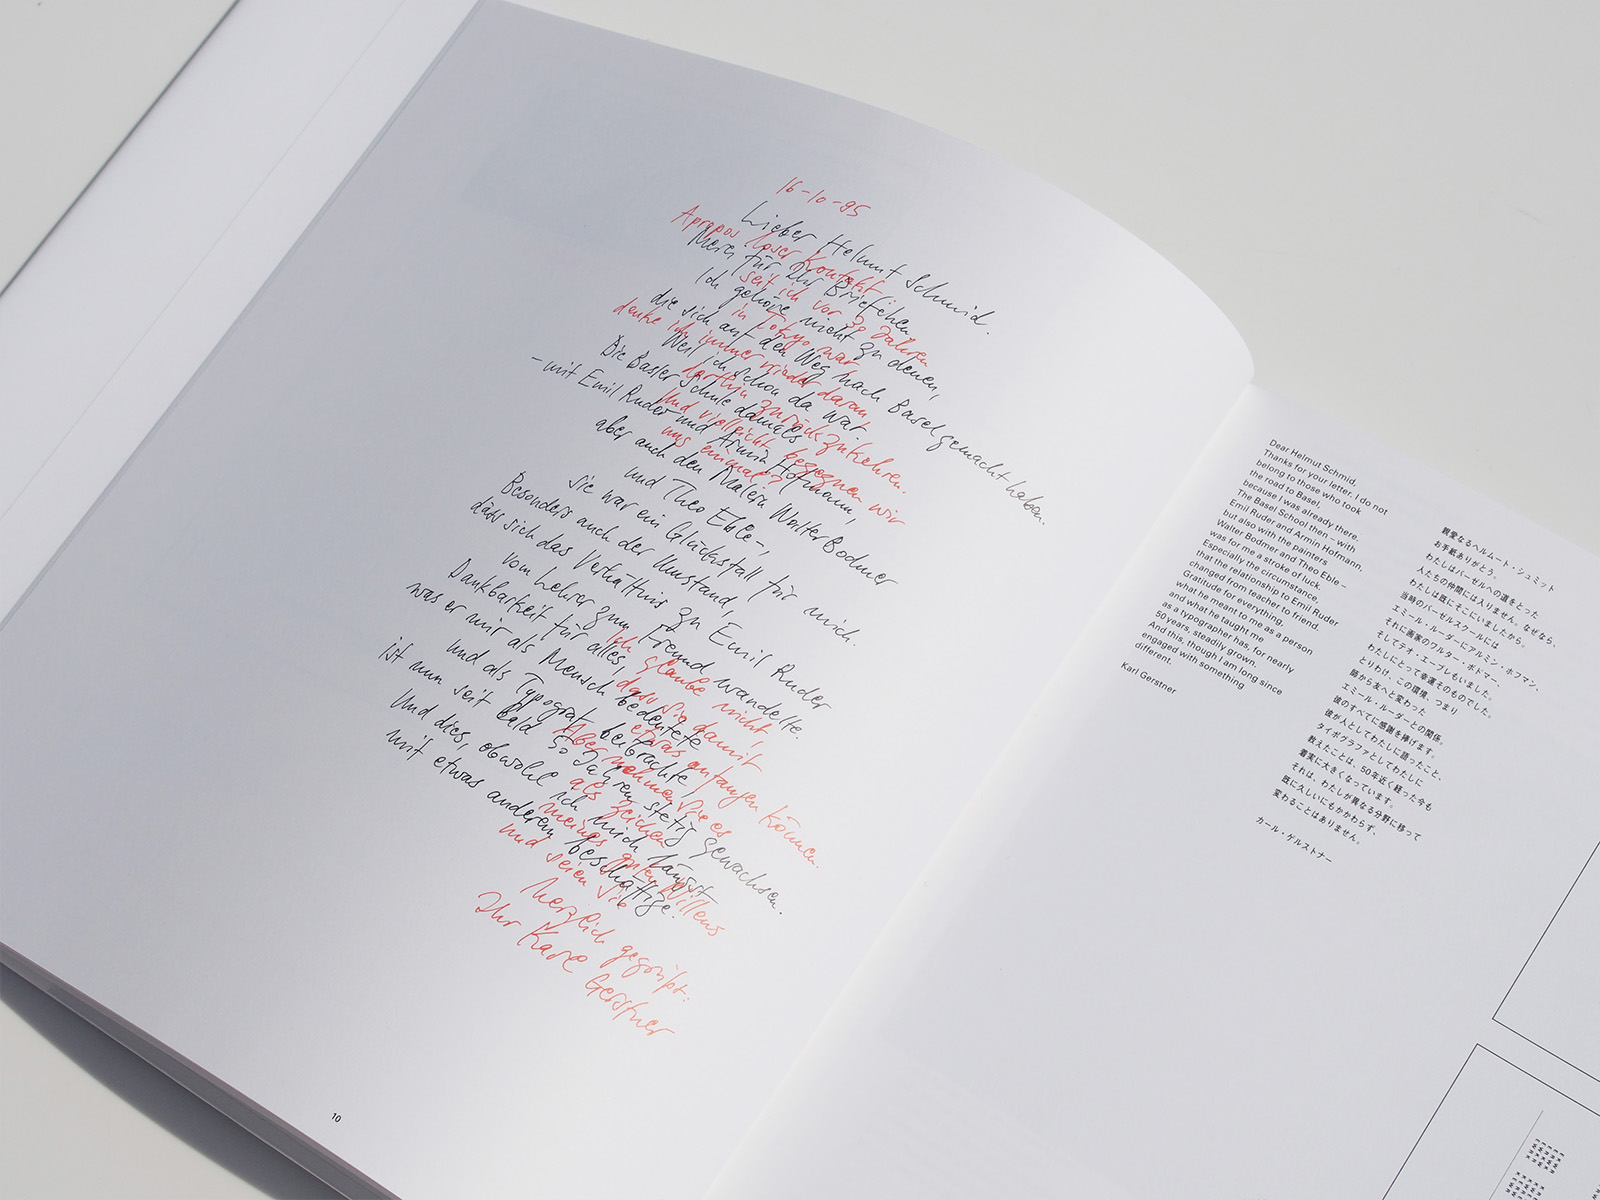 16-10-95
Lieber Helmut Schmid.
Merci für Ihr Briefchen
Ich gehöre nicht zu denen,
die sich auf den Weg nach Basel gemacht haben.
Weil ich schon da war.
Die Basler Schule damals
– mit Emil Ruder und Armin Hofmann,
aber auch den Malern Walter Bodmer
und Theo Eble –,
sie war ein Glücksfall für mich.
Besonders auch der Umstand,
dass sich das Verhältnis zu Emil Ruder
vom Lehrer zum Freund wandelte.
Dankbarkeit für alles,
was er mir als Mensch bedeutete
und als Typograf beibrachte,
ist nun seit bald 50 Jahren stetig gewachsen.
Und dies, obwohl ich mich längst
mit etwas anderem beschäftige.
Apropos loser Kontakt:
seit ich vor 30 Jahren
in Tokyo war
denke ich immer wieder daran
dorthin zurückzukehren.
Und vielleicht begegnen wir
uns einmal?
Ich glaube nicht,
dass Sie damit
etwas anfangen können.
Aber nehmen Sie es
als Zeichen
meines guten Willens
und seien Sie
herzlich gegrüsst:
Ihr Karl Gerstner
10
Dear Helmut Schmid,
Thanks for your letter. I do not
belong to those who took
the road to Basel,
because I was already there.
The Basel School then – with
Emil Ruder and Armin Hofmann,
but also with the painters
Walter Bodmer and Theo Eble –
was for me a stroke of luck.
Especially the circumstance
that the relationship to Emil Ruder
changed from teacher to friend.
Gratitude for everything,
what he meant to me as a person
and what he taught me
as a typographer has, for nearly
50 years, steadily grown.
And this, though I am long since
engaged with something
different.
Karl Gerstner
親愛なるヘルムート・シュミット
お手紙ありがとう。
わたしはバーゼルへの道をとった
人たちの仲間には入りません。なぜなら、
わたしは既にそこにいましたから。
当時のバーゼルスクールには
エミール・ルーダーにアルミン・ホフマン、
それに画家のワルター・ボドマー、
そしてテオ・エーブレもいました。
わたしにとって幸運そのものでした。
とりわけ、この環境、つまり
師から友へと変わった
エミール・ルーダーとの関係。
彼のすべてに感謝を捧げます。
彼が人としてわたしに語ったこと、
タイポグラファとしてわたしに
教えたことは、50年近く経った今も
着実に大きくなっています。
それは、わたしが異なる分野に移って
既に久しいにもかかわらず、
変わることはありません。
カール・ゲルストナー